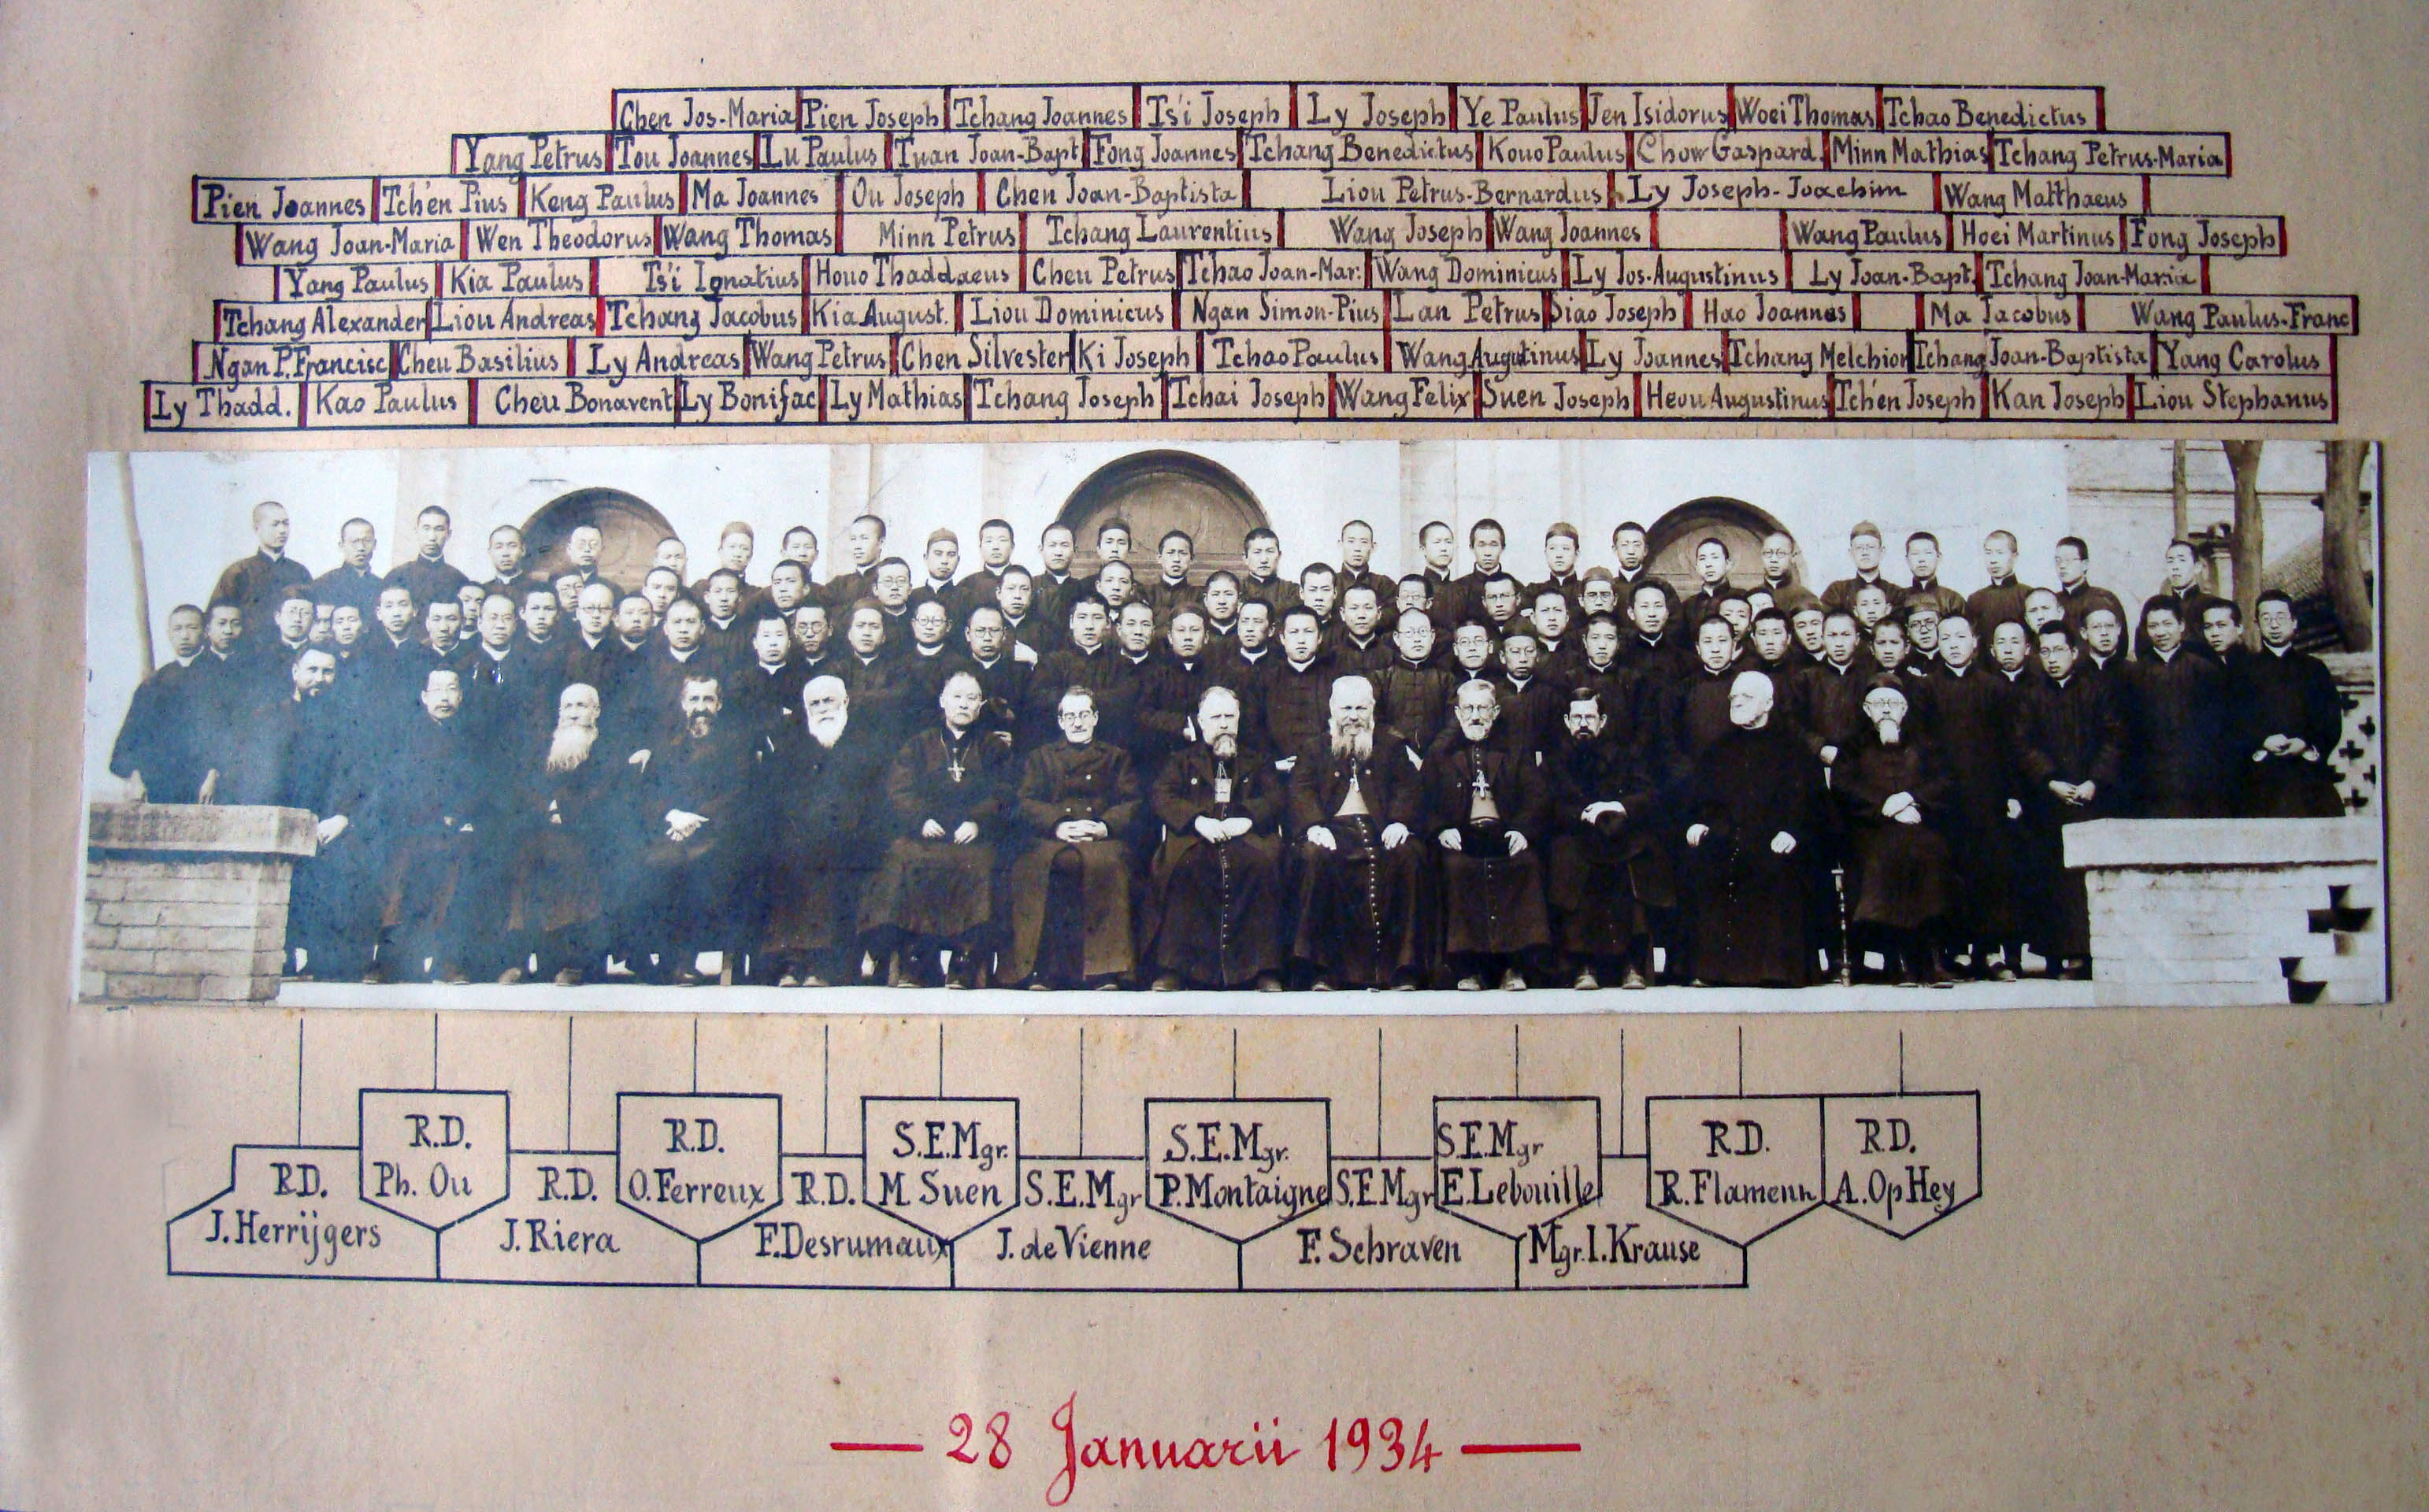 Chen Jos-Maria Pien Joseph Tchang Joannes Ts'i Joseph Ly Joseph Ye Paulus Jen Isidorus Woei Thomas Tchao Benedictus
Yang Petrus Tou Joannes Lu Paulus Tuan Joan-Bapt Fong Joannes Tchang Benedictus Kouo Paulus Chow Gaspard. Minn Mathias Tchang Petrus-Maria
Pien Joannes Tch'en Pius Keng Paulus Ma Joannes Ou Joseph Chen Joan-Baptista Liou Petrus-Bernardus Ly Joseph-Joachim Wang Matthaeus
Wang Joan-Maria Wen Theodorus Wang Thomas Minn Petrus Tchang Laurentius Wang Joseph Wang Joannes Wang Paulus Hoei Martinus Fong Joseph
Yang Paulus Kia Paulus Ts'i Ignatius Houo Thaddaeus Cheu Petrus Tchao Joan-Mar. Wang Dominicus Ly Jos-Augustinus Ly Joan-Bapt. Tchang Joan-Maria
Tchang Alexander Liou Andreas Tchang Jacobus Kia August. Liou Dominicus Ngan Simon-Pius Lan Petrus Siao Joseph Hao Joannes Ma Jacobus Wang Paulus-Franc
Ngan P. Francisc Cheu Basilius Ly Andreas Wang Petrus Chen Silvester Ki Joseph Tchao Paulus Wang Augutinus Ly Joannes Tchang Melchior Tchang Joan-Baptista Yang Carolus
Ly Thadd. Kao Paulus Cheu Bonavent Ly Bonifac Ly Mathias Tchang Joseph Tchai Joseph Wang Felix Suen Joseph Heou Augustinus Tch'en Joseph Kan Joseph Liou Stephanus
R.D. Ph. Ou
R.D. O. Ferreux
S.E.Mgr. M. Suen
S.E.Mgr. P. Montaigne
S.E.Mgr E. Lebouille
R.D. R. Flamenn
R.D. A. Op Hey
R.D. J. Herrijgers
R.D. J. Riera
R.D. F. Desrumaux
S.E.Mgr J. de Vienne
S.E.Mgr F. Schraven
Mgr. I. Krause
— 28 Januarii 1934 —